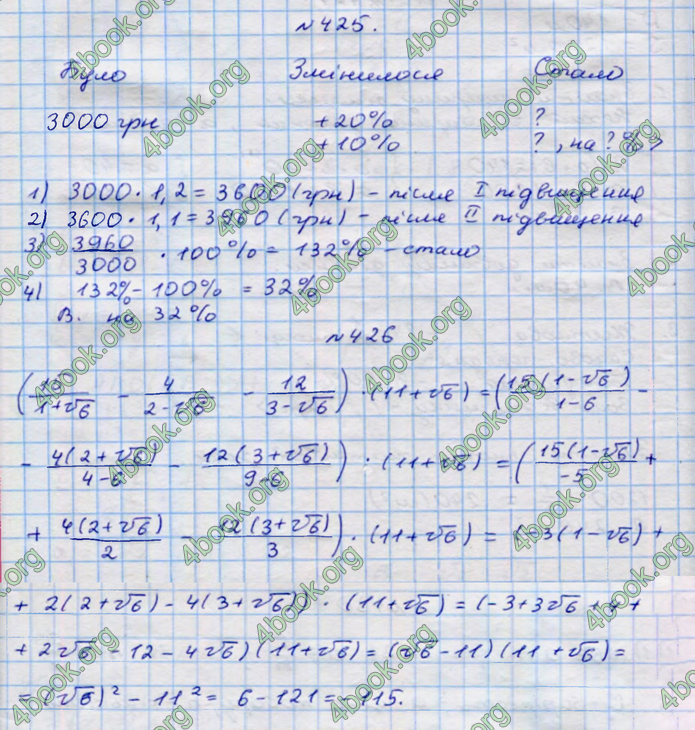 №425.
Було Змінилося Стало
3000 грн +20% ?
+10% ?, на ? %
1) 3000 · 1,2 = 3600 (грн) - після I підвищення
2) 3600 · 1,1 = 3960 (грн) - після II підвищення
3) 3960/3000 · 100% = 132% - стало
4) 132% - 100% = 32%
В. на 32%
№426
(15/(1+√6) - 4/(2-√6) - 12/(3-√6)) · (11+√6) = (15(1-√6)/(1-6) -
- 4(2+√6)/(4-6) - 12(3+√6)/(9-6)) · (11+√6) = (15(1-√6)/-5 +
+ 4(2+√6)/2 - 12(3+√6)/3) · (11+√6) = (-3(1-√6) +
+ 2(2+√6) - 4(3+√6)) · (11+√6) = (-3+3√6 + 4 +
+ 2√6 - 12 - 4√6)(11+√6) = (√6-11)(11+√6) =
= (√6)² - 11² = 6 - 121 = -115.
4book.org